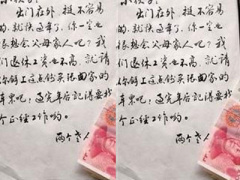 出门在外 挺不容易
的. 就快过年了, 你一定也
很想念父母家人吧? 我
们退休工资不高. 就请
你拿上这点钱买张回家的
车票吧, 过完年后记得要找
个正经工作哟。
两个老人
出门在外 挺不容易
的. 就快过年了, 你一定也
很想念父母家人吧? 我
们退休工资不高. 就请
你拿上这点钱买张回家的
车票吧, 过完年后记得要找
个正经工作哟。
两个老人